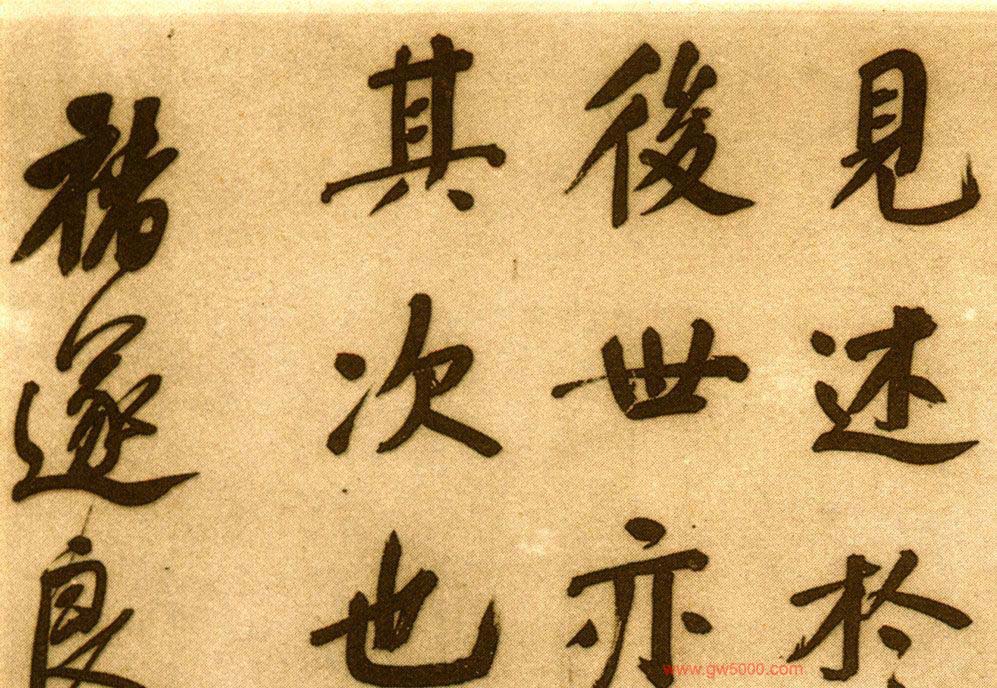 見述於
後世亦
其次也
褚遂良
www.gw5000.com